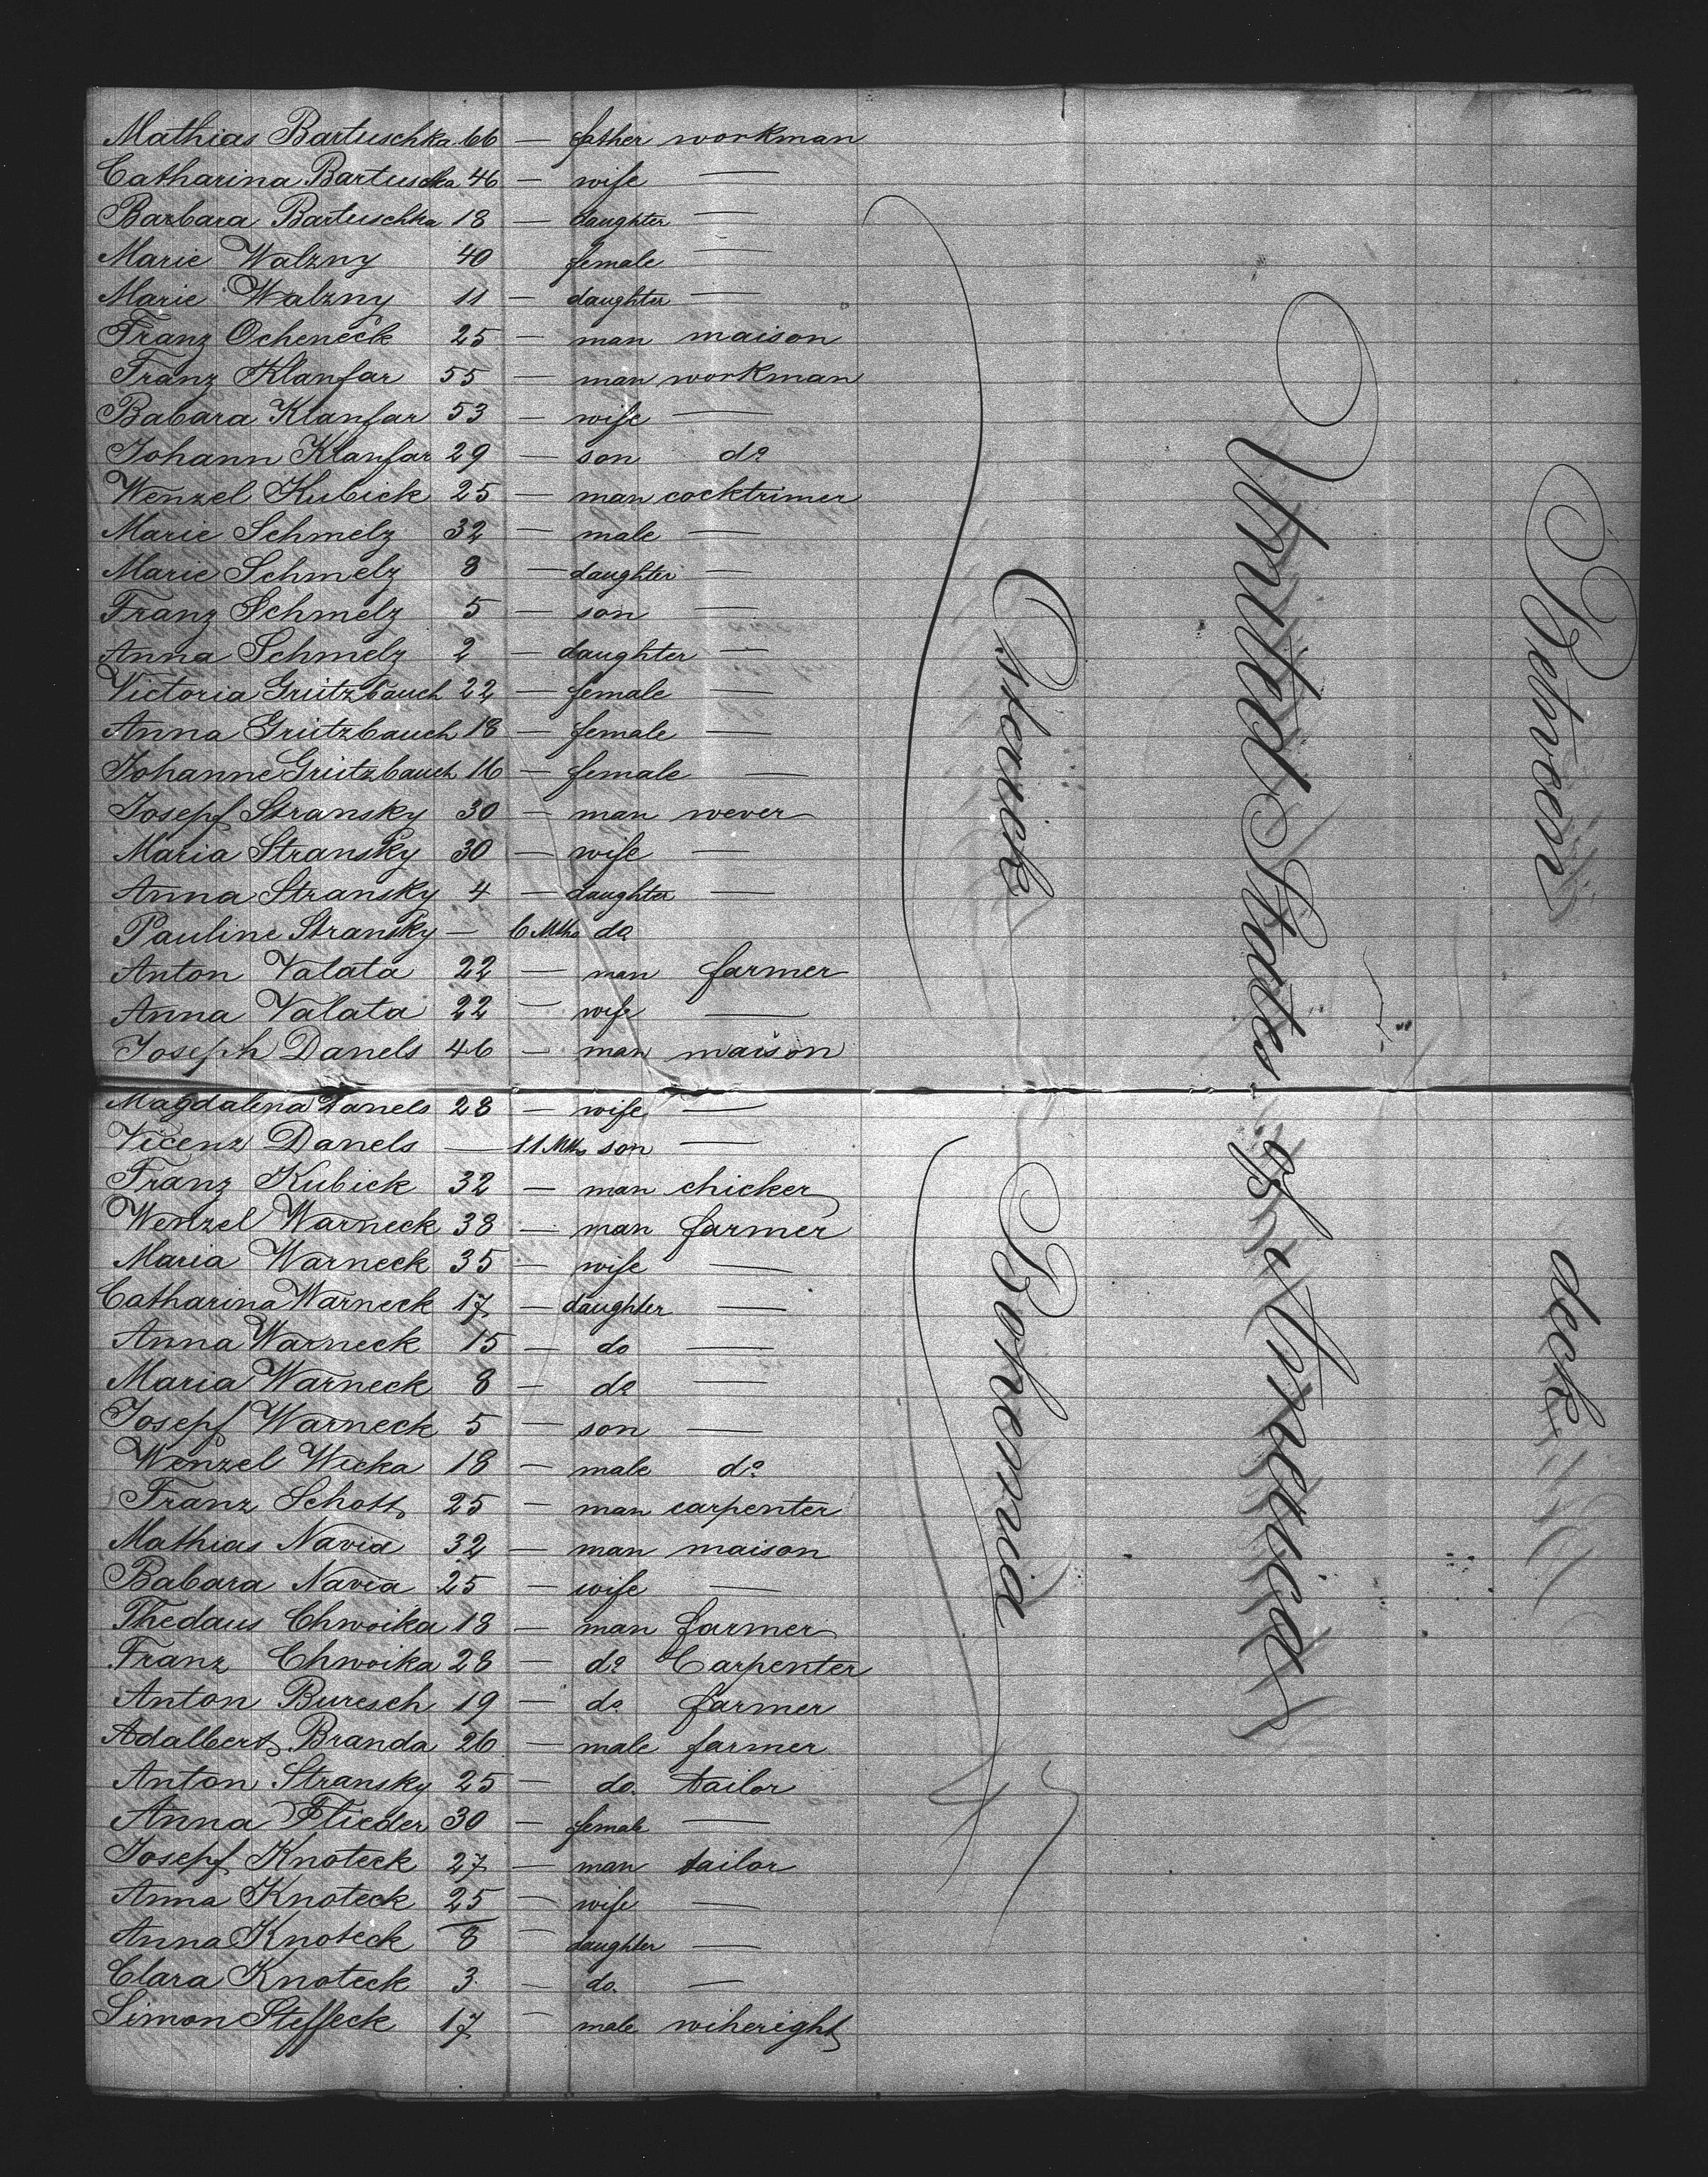 Mathias Bartuschka 66 — father workman
Catharina Bartuschka 46 — wife —
Barbara Bartuschka 18 — daughter —
Marie Walzny 40 female —
Marie Walzny 11 — daughter —
Franz Ocheneck 25 — man maison
Franz Klanfar 55 — man workman
Babara Klanfar 53 — wife —
Johann Klanfar 29 — son do
Wenzel Kubick 25 — man cocktrimer
Marie Schmelz 32 — male —
Marie Schmelz 8 — daughter —
Franz Schmelz 5 — son —
Anna Schmelz 2 — daughter —
Victoria Grützbauch 22 — female —
Anna Grützbauch 18 — female —
Johanne Grützbauch 16 — female —
Josepf Stransky 30 — man wever
Maria Stransky 30 — wife —
Anna Stransky 4 — daughter —
Pauline Stransky — 6 Mths do
Anton Valata 22 — man farmer
Anna Valata 22 — wife —
Joseph Danels 46 — man maison
Magdalena Danels 28 — wife —
Vicenz Danels — 11 Mths son —
Franz Kubick 32 — man chicker
Wenzel Warneck 38 — man farmer
Maria Warneck 35 — wife —
Catharina Warneck 17 — daughter —
Anna Warneck 15 — do —
Maria Warneck 8 — do —
Josepf Warneck 5 — son —
Wenzel Wicka 18 — male do
Franz Schott 25 — man carpenter
Mathias Navia 32 — man maison
Babara Navia 25 — wife —
Thedaus Chwoika 18 — man farmer
Franz Chwoika 28 — do Carpenter
Anton Buresch 19 — do farmer
Adalbert Branda 26 — male farmer
Anton Stransky 25 — do. tailor
Anna Flieder 30 — female —
Josepf Knoteck 27 — man tailor
Anna Knoteck 25 — wife —
Anna Knoteck 8 — daughter —
Clara Knoteck 3 — do. —
Simon Steffeck 17 — male wiheright
Bohemia
United States of America
Between deck